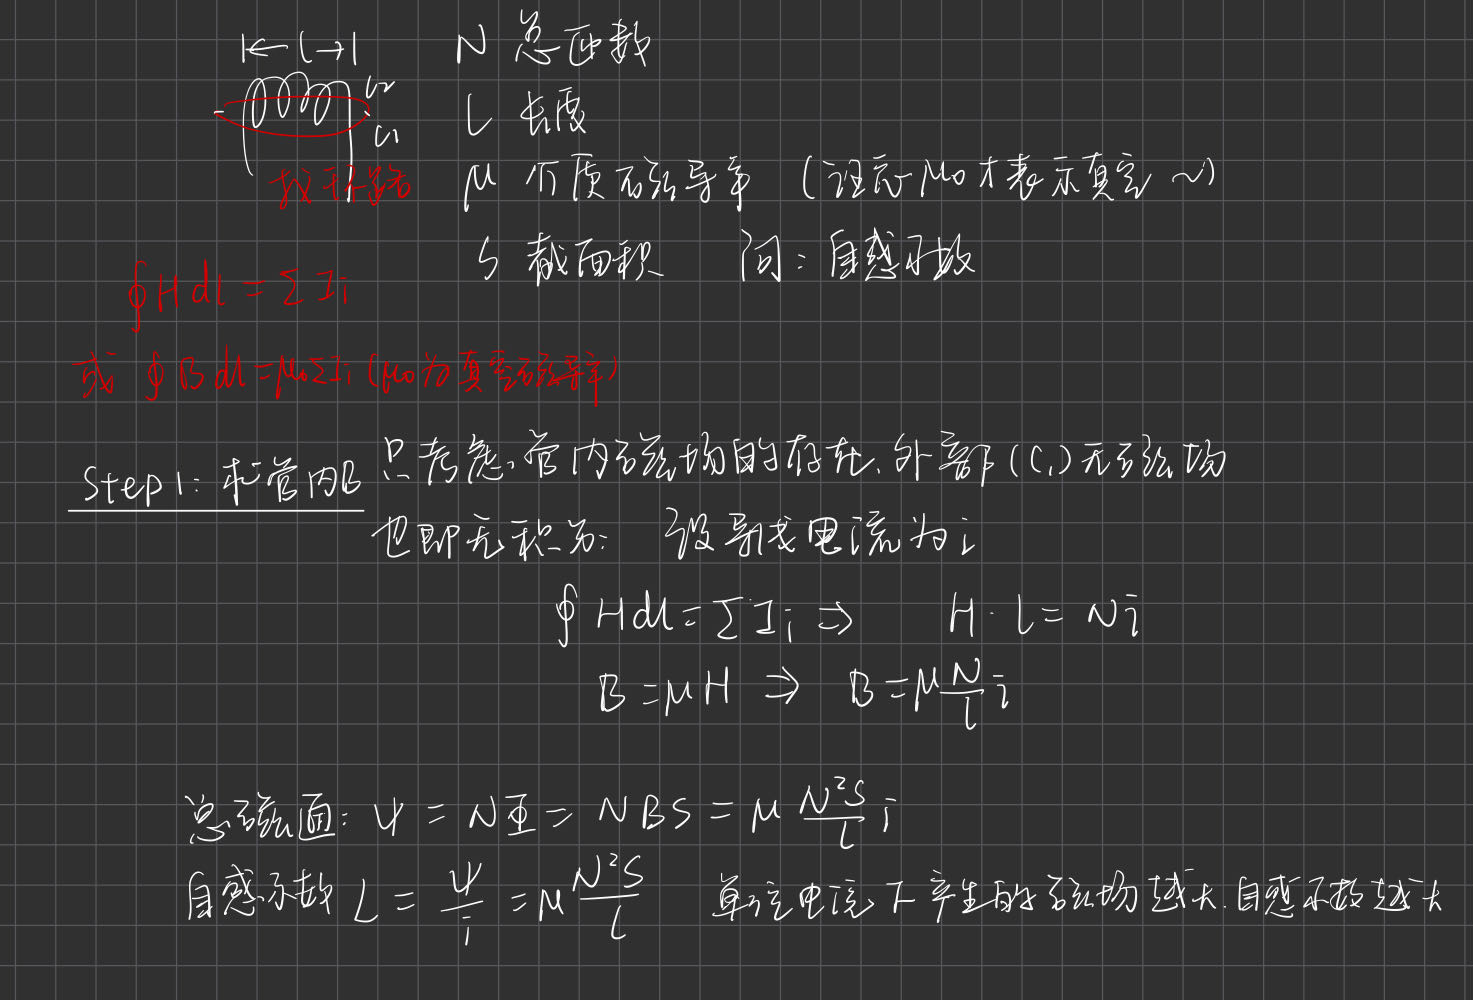 l
N 总匝数
C2
C1
l 长度
找环路
μ 介质石磁导率 (注意μ0才表示真空~)
S 截面积 问：自感系数
∮Hdl=ΣIi
或 ∮Bdl=μ0ΣIi (μ0为真空磁导率)
Step1: 求管内B 只考虑管内磁场的存在,外部(C1)无磁场
也即无积分: 设导线电流为i
∮Hdl=ΣIi ⇒ H·l=Ni
B=μH ⇒ B=μN/l i
总磁通: Ψ=NΦ=NBS=μ N²S/l i
自感系数 L=Ψ/i=μ N²S/l 单位电流下产生的磁场越大,自感系数越大